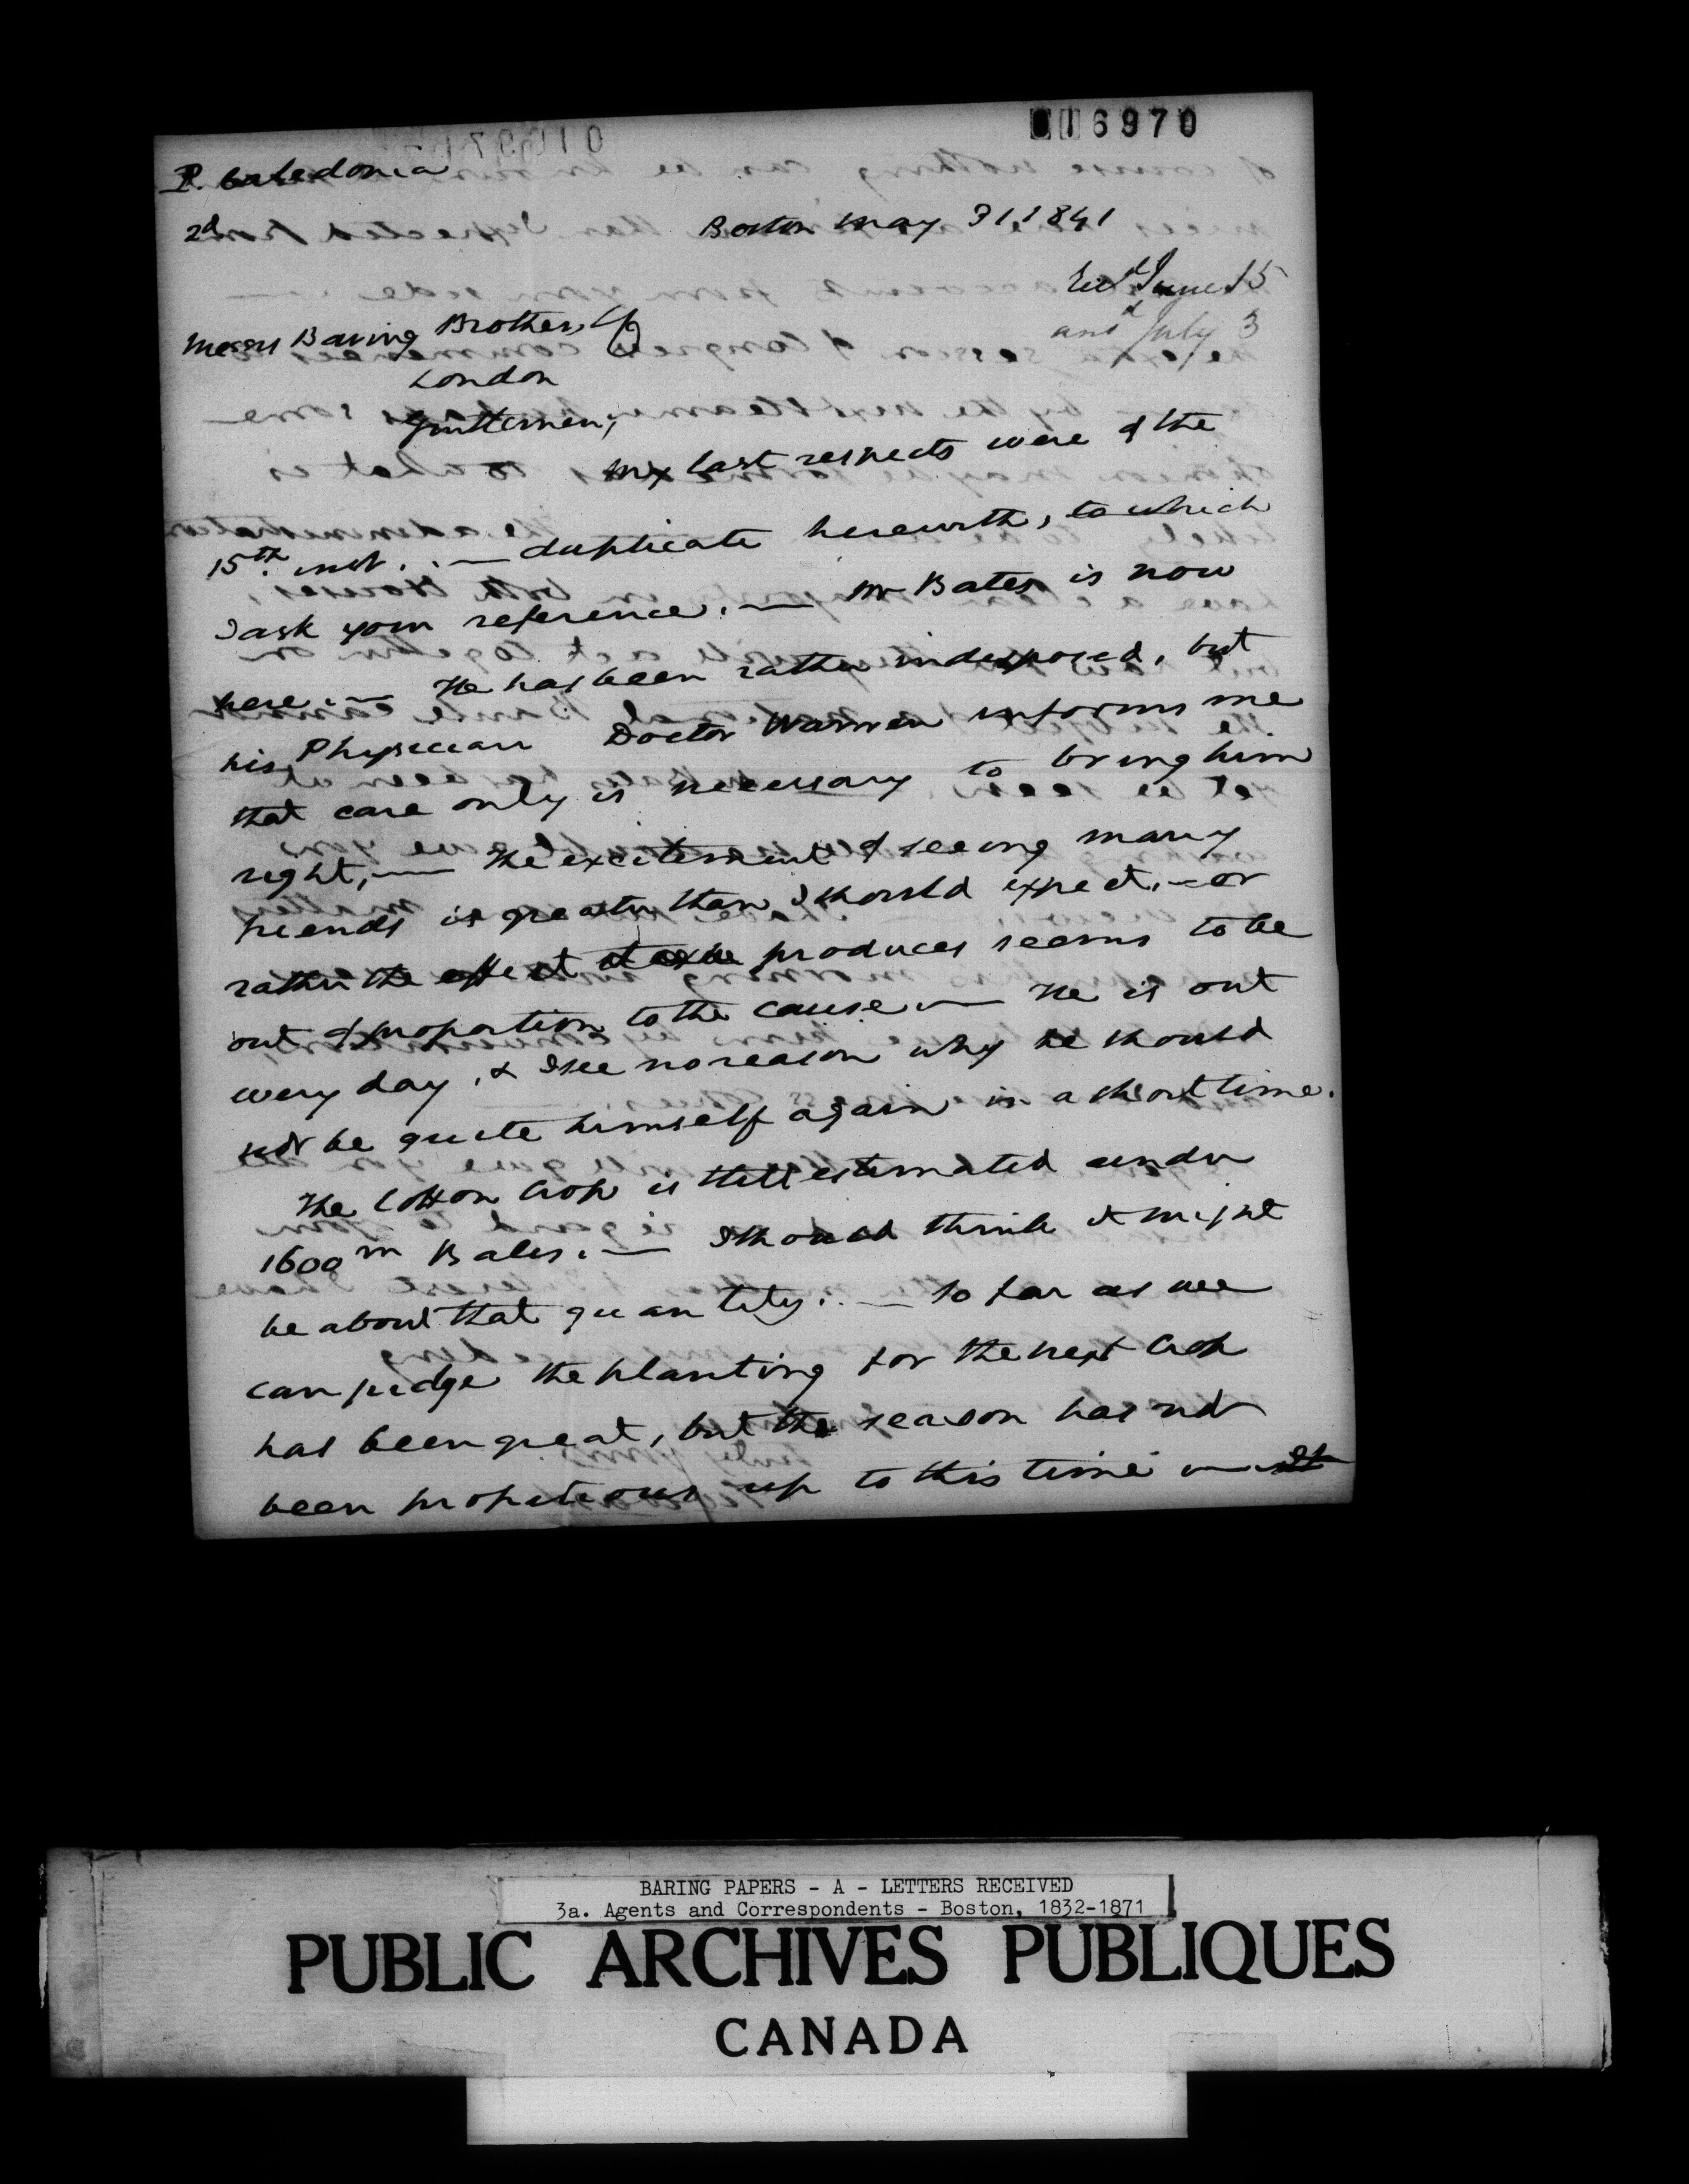 016970
P. Caledonia
2d
Boston May 31 1841
Recd June 15
ansd July 3
Messrs Baring Brothers & Co
London
Gentlemen,
My last respects were of the
15th inst. — duplicate herewith, to which
I ask your reference. — Mr Bates is now
here. — He has been rather indisposed, but
his Physician Doctor Warren informs me
that care only is necessary to bring him
right, — the excitement of seeing many
friends is greater than I should expect, — or
rather the effect it produces seems to be
out of proportion to the cause — He is out
every day, & I see no reason why he should
not be quite himself again in a short time.
The Cotton Crop is still estimated under
1600 m Bales. — I should think it might
be about that quantity. — So far as we
can judge the planting for the next Crop
has been great, but the season has not
been propitious up to this time —
BARING PAPERS - A - LETTERS RECEIVED
3a. Agents and Correspondents - Boston, 1832-1871
PUBLIC ARCHIVES PUBLIQUES
CANADA